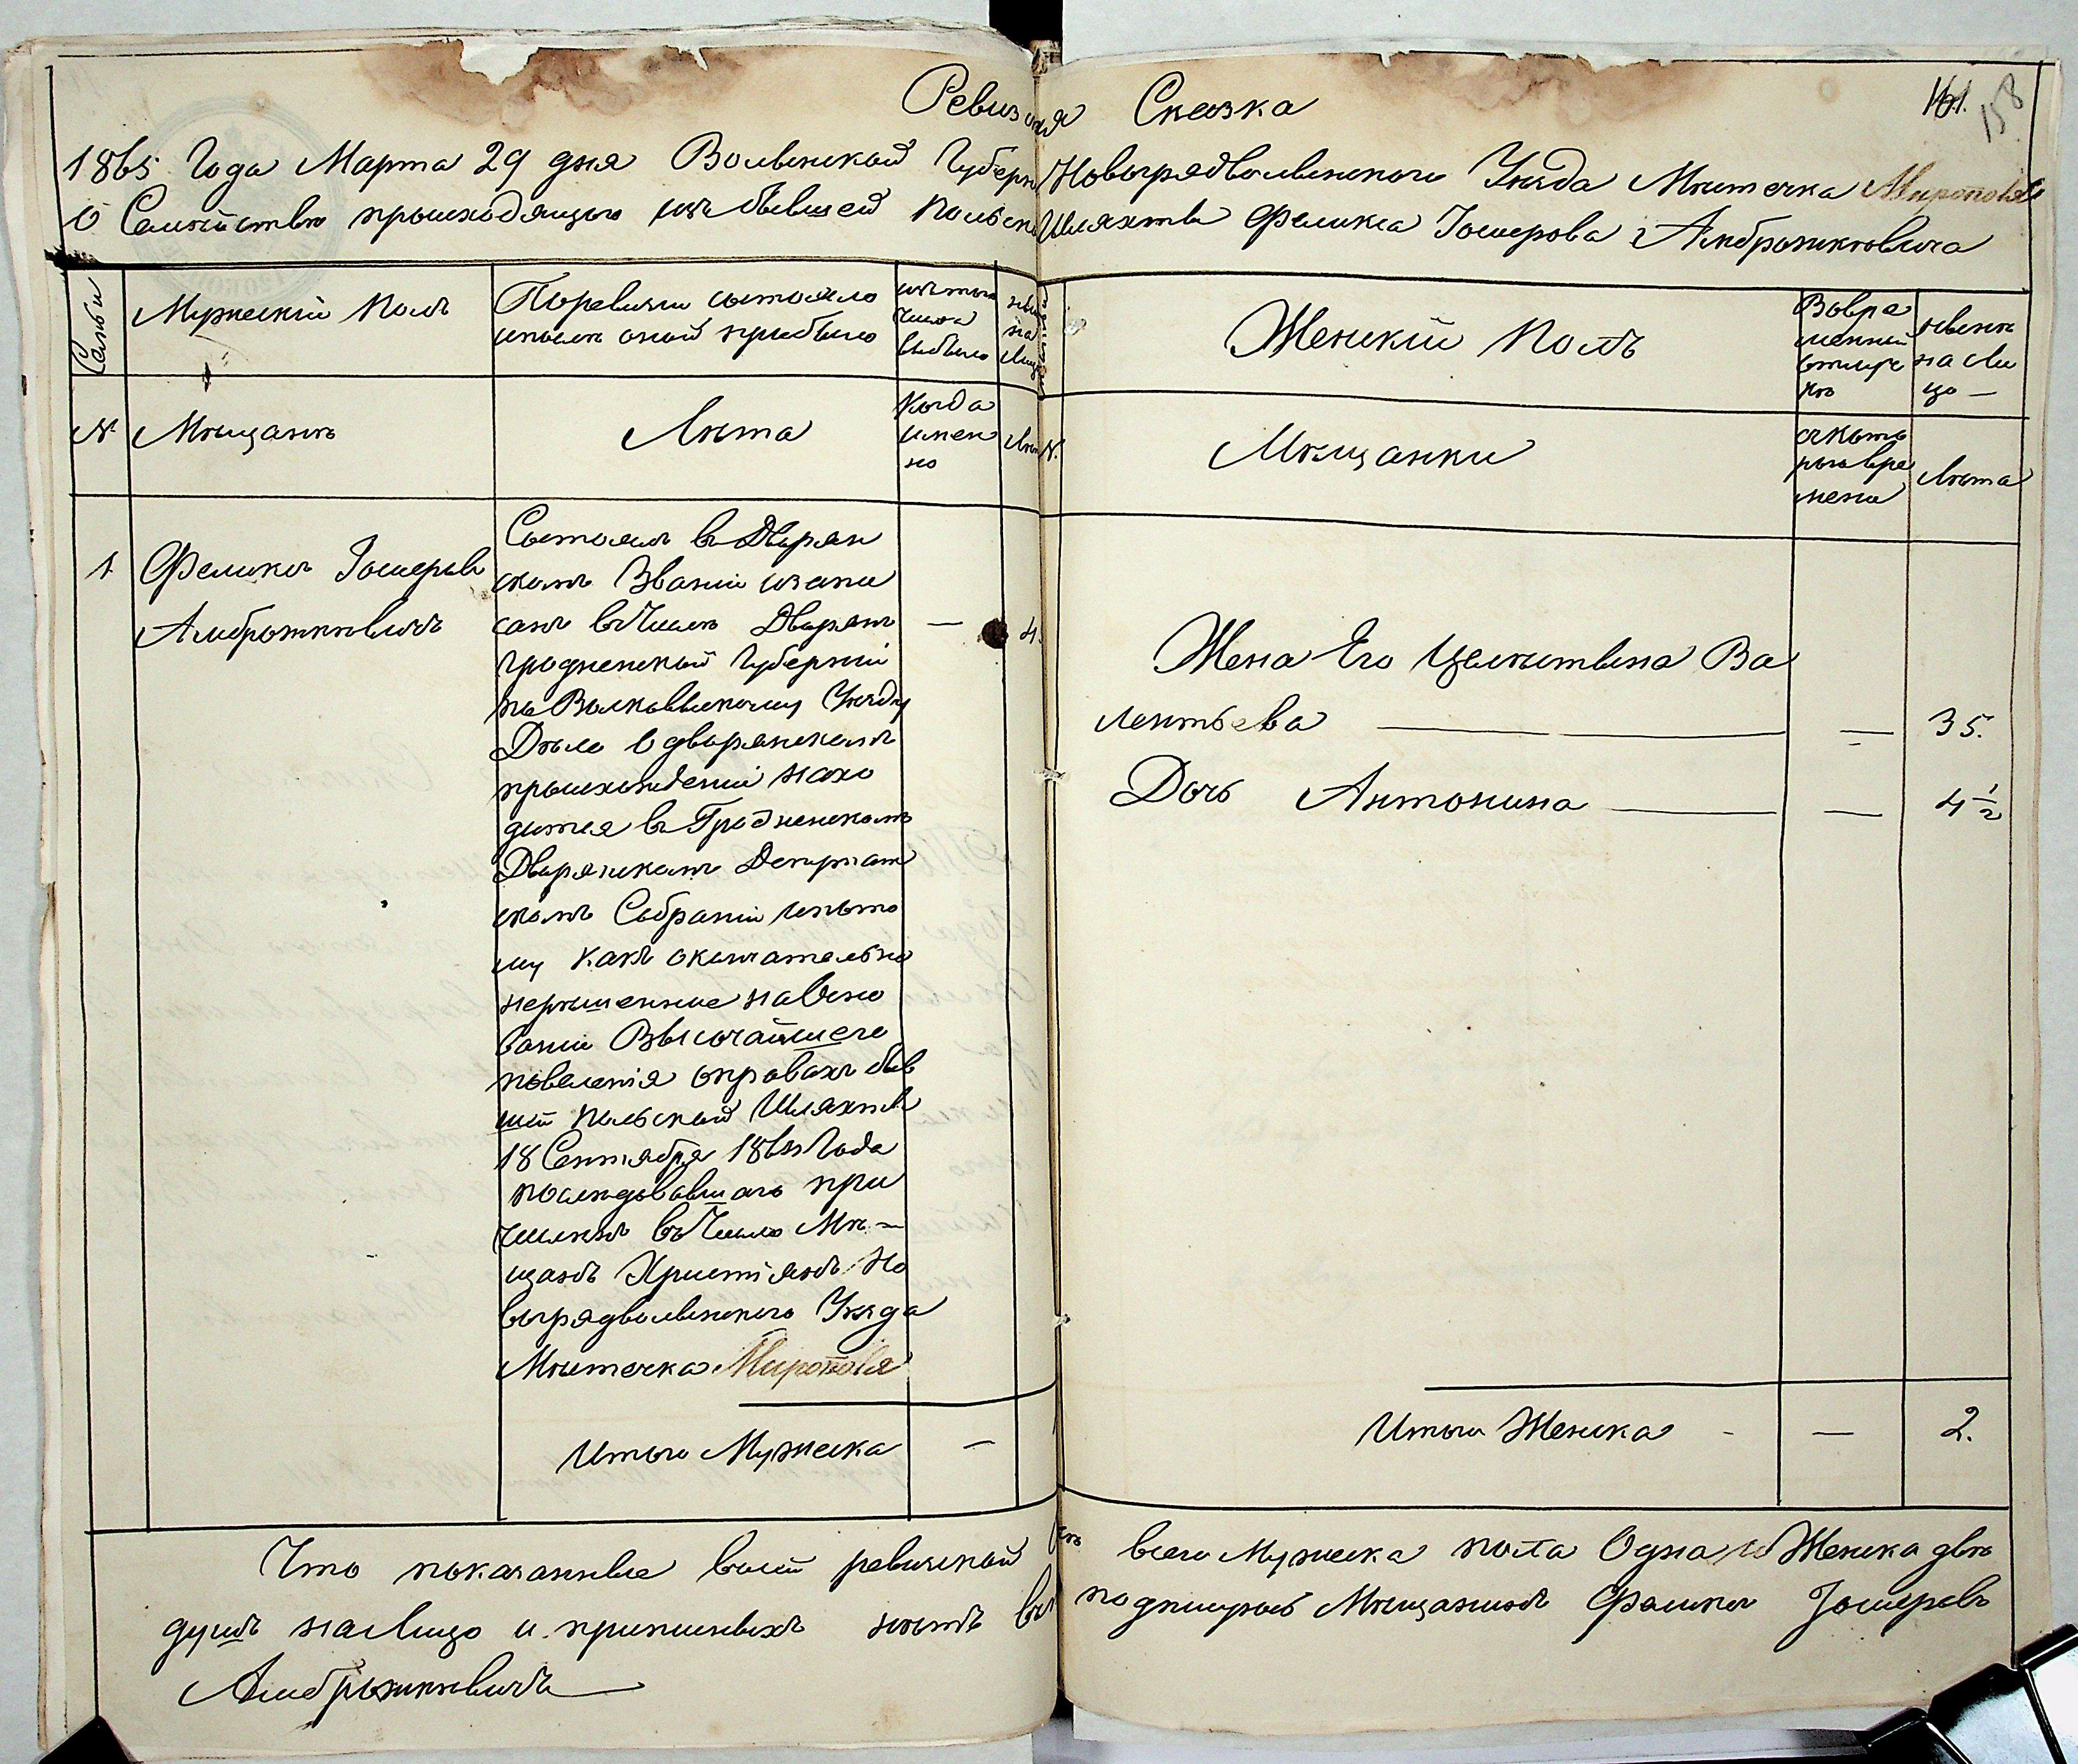 Ревизская Сказка
161.
158
1865 Года Марта 29 дня Волынской Губерн Новоградволынского Уѣзда Мѣстечка Мирополя
О Семействѣ происходящего изъ бывшей Польск Шляхты Феликса Іосифова Амброжкевича
Семьи
Мужескій Полъ
По ревизіи состояло
и послѣ оной прибыло
изъ того
числа
выбыло
нынѣ
на
Лицо
Женскій Полъ
Вовре
менной
отлуч
кѣ
нынѣ
на Ли
цо —
N.
Мѣщане
Лѣта
Когда
имен
но
Лѣта
N.
Мѣщанки
съ кото
раго вре
мени
Лѣта
1 Феликсъ Іосифовъ
Амброжкевичъ
Состоялъ въ Дворян
скомъ Званіи и запи
санъ въ Числѣ Дворянъ
Гродненской Губерніи
по Волковыскому Уѣзду
Дѣло о дворянскомъ
происхожденіи нахо
дится въ Гродненскомъ
Дворянскомъ Депутат
скомъ Собраніи и пото
му какъ окончательно
нерѣшенное на Осно
ваніи Высочайшего
повеленія о правахъ быв
шей Польской Шляхты
18 Сентября Года
последовавшаго при
численъ въ Число Мѣ-
щанъ Христіянъ Но
воградволынского Уѣзда
Мѣстечка Мирополя
—
Жена Его Целестина Ва
лентьева — — 35.
Дочь Антонина — — 4 1/2
Итого Мужеска —
Итого Женска - — 2.
Что показанные въ сей ревизской всего Мужеска пола Одна и Женска двѣ
душъ на Лицо и прописныхъ нѣтъ въ подписуюсь Мѣщанинъ Феликсъ Іосифовъ
Амброжкевичъ